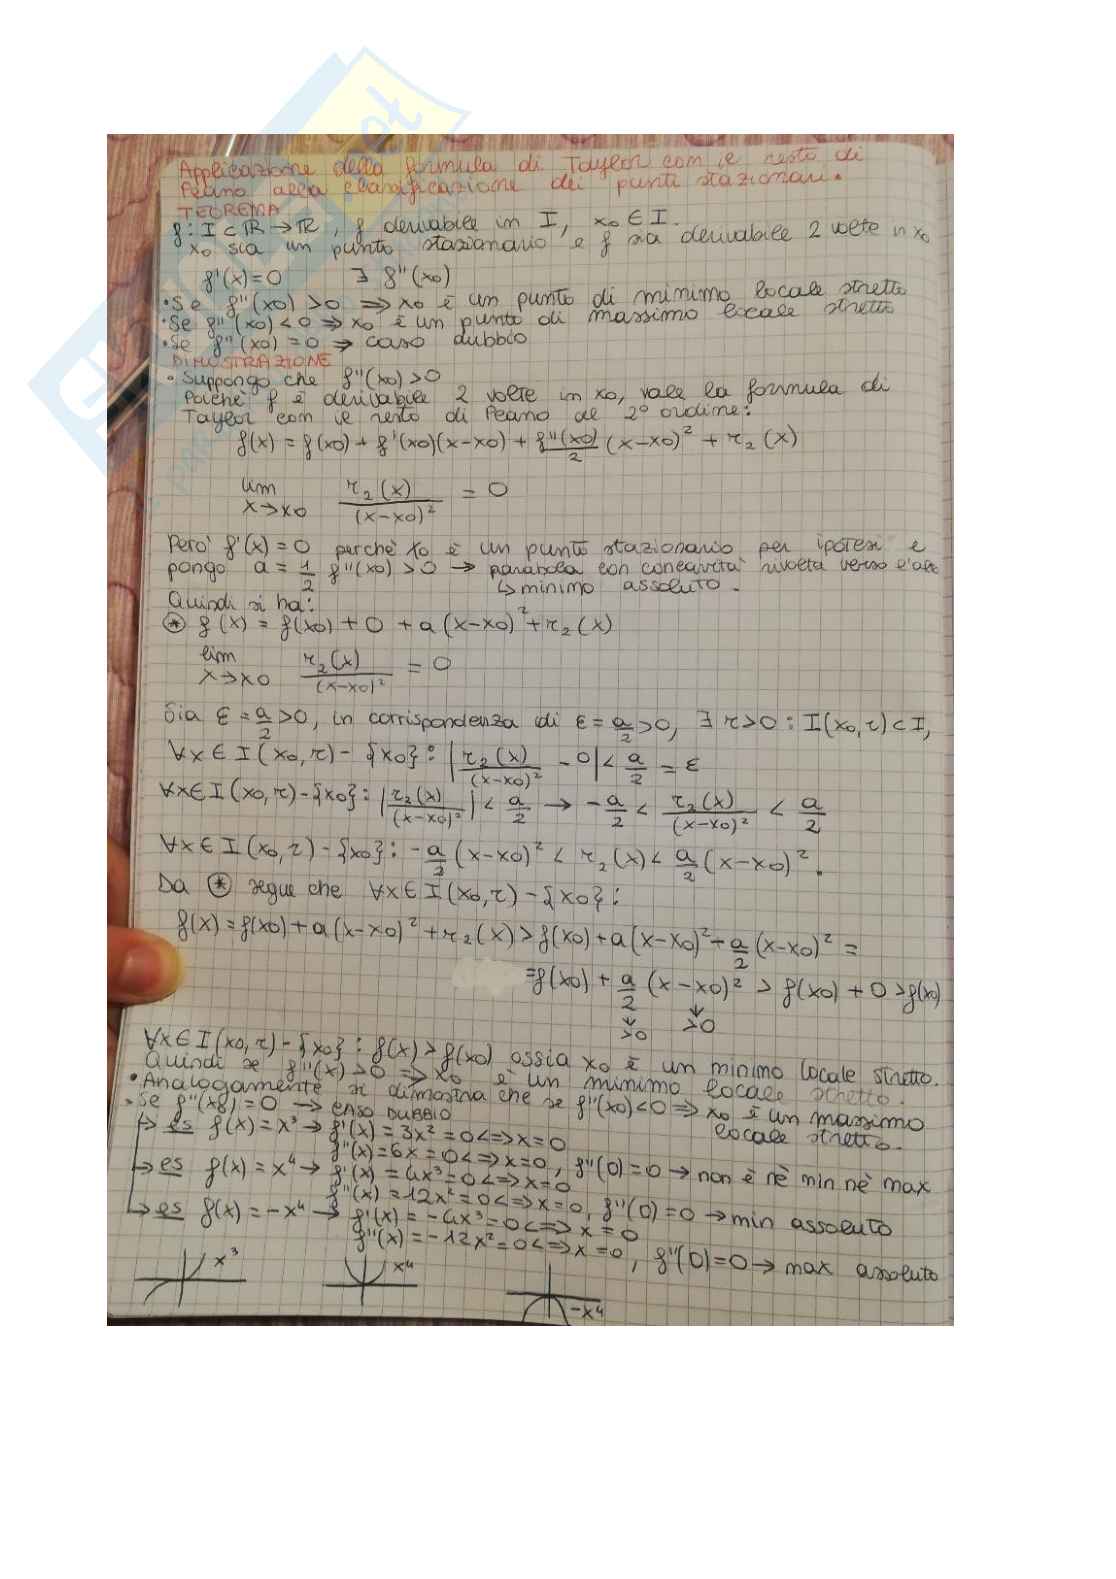 Applicazione della formula di Taylor con il resto di
Peano alla classificazione dei punti stazionari.
TEOREMA
f: I ⊂ ℝ → ℝ, f derivabile in I, x₀ ∈ I.
x₀ sia un punto stazionario e f sia derivabile 2 volte in x₀
f'(x) = 0 ∃ f''(x₀)
• Se f''(x₀) > 0 ⇒ x₀ è un punto di minimo locale stretto
• Se f''(x₀) < 0 ⇒ x₀ è un punto di massimo locale stretto
• Se f''(x₀) = 0 ⇒ caso dubbio
DIMOSTRAZIONE
• Suppongo che f''(x₀) > 0
Poiché f è derivabile 2 volte in x₀, vale la formula di
Taylor con il resto di Peano del 2° ordine:
f(x) = f(x₀) + f'(x₀)(x-x₀) + f''(x₀)/2 (x-x₀)² + r₂(x)
lim x→x₀ r₂(x)/(x-x₀)² = 0
Però f'(x) = 0 perchè x₀ è un punto stazionario per ipotesi e
pongo a = 1/2 f''(x₀) > 0 → parabola con concavità rivolta verso l'alto
↳ minimo assoluto.
Quindi si ha:
⊛ f(x) = f(x₀) + 0 + a(x-x₀)² + r₂(x)
lim x→x₀ r₂(x)/(x-x₀)² = 0
Sia ε = a/2 > 0, in corrispondenza di ε = a/2 > 0, ∃ r > 0 : I(x₀,r) ⊂ I,
∀x ∈ I(x₀,r) - {x₀} : |r₂(x)/(x-x₀)² - 0| < a/2 = ε
∀x ∈ I(x₀,r) - {x₀} : |r₂(x)/(x-x₀)²| < a/2 → -a/2 < r₂(x)/(x-x₀)² < a/2
∀x ∈ I(x₀,r) - {x₀} : -a/2 (x-x₀)² < r₂(x) < a/2 (x-x₀)².
Da ⊛ segue che ∀x ∈ I(x₀,r) - {x₀} :
f(x) = f(x₀) + a(x-x₀)² + r₂(x) > f(x₀) + a(x-x₀)² - a/2 (x-x₀)² =
= f(x₀) + a/2 (x-x₀)² > f(x₀) + 0 > f(x₀)
↓ >0 ↓ >0
∀x ∈ I(x₀,r) - {x₀} : f(x) > f(x₀) ossia x₀ è un minimo locale stretto.
Quindi se f''(x) > 0 ⇒ x₀ è un minimo locale stretto.
• Analogamente si dimostra che se f''(x₀) < 0 ⇒ x₀ è un massimo
locale stretto.
• Se f''(x₀) = 0 → CASO DUBBIO
↳ es f(x) = x³ → f'(x) = 3x² = 0 <=> x = 0
f''(x) = 6x = 0 <=> x = 0, f''(0) = 0 → non è nè min nè max
↳ es f(x) = x⁴ → f'(x) = 4x³ = 0 <=> x = 0
f''(x) = 12x² = 0 <=> x = 0, f''(0) = 0 → min assoluto
↳ es f(x) = -x⁴ → f'(x) = -4x³ = 0 <=> x = 0
f''(x) = -12x² = 0 <=> x = 0, f''(0) = 0 → max assoluto
x³ x⁴ -x⁴